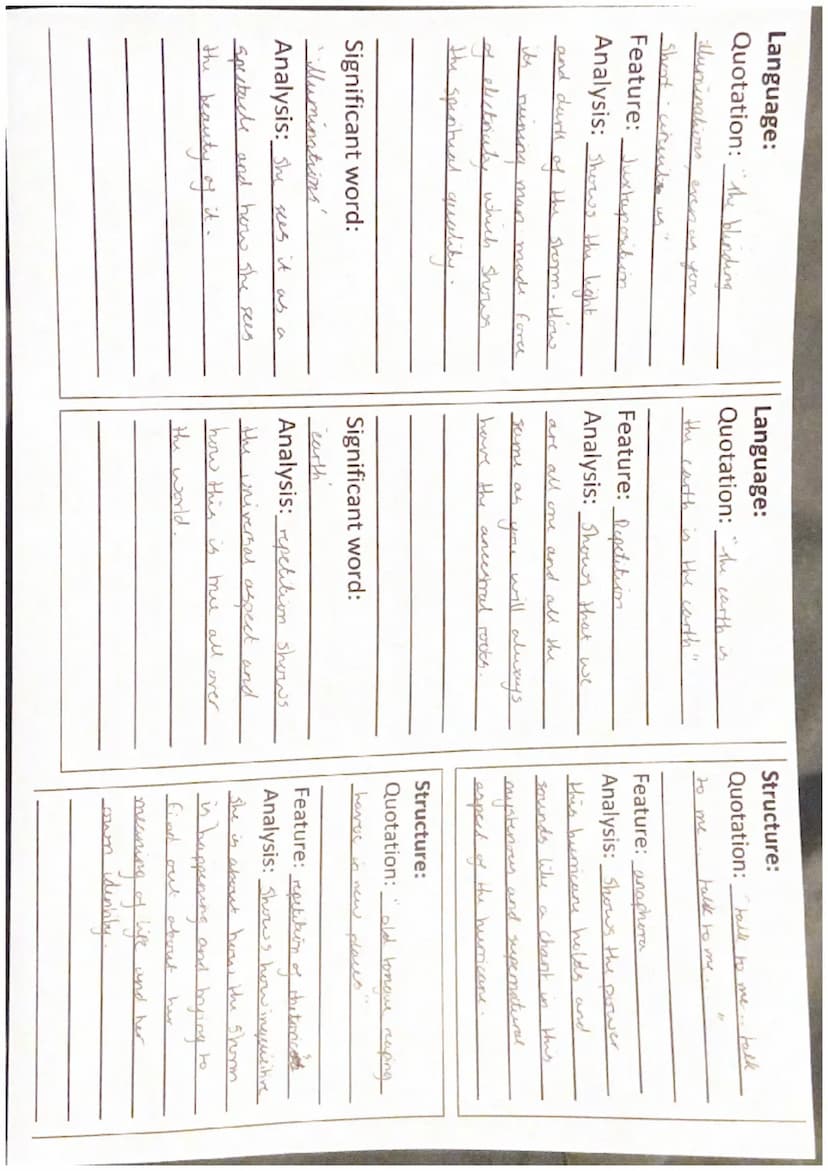 Language:
Quotation: "the blinding
illuminations, even as you
short-circuit us"
Feature: Juxtaposition
Analysis: shows the light
and dark of the storm. How
its ruining man made force
of electricity which shows
the spiritual quality.
Significant word:
'illuminations'
Analysis: she sees it as a
spectacle and how she sees
the beauty of it.
Language:
Quotation: "the earth is
the earth is the earth"
Feature: Repetition
Analysis: Shows that we
are all one and all the
same as you will always
have the ancestral roots.
Significant word:
'earth'
Analysis: repetition shows
the universal aspect and
how this is true all over
the world.
Structure:
Quotation: "talk to me... talk
to me... talk to me..."
Feature: anaphora
Analysis: Shows the power
this hurricane holds and
sounds like a chant in this
mysterious and supernatural
aspect of the hurricane.
Structure:
Quotation: "old tongue reaping
havoc in new places"
Feature: repetition of
Analysis: Shows how inquisitive
she is about how the storm
is happening and trying to
find out about her
meaning of life and her
own identity.